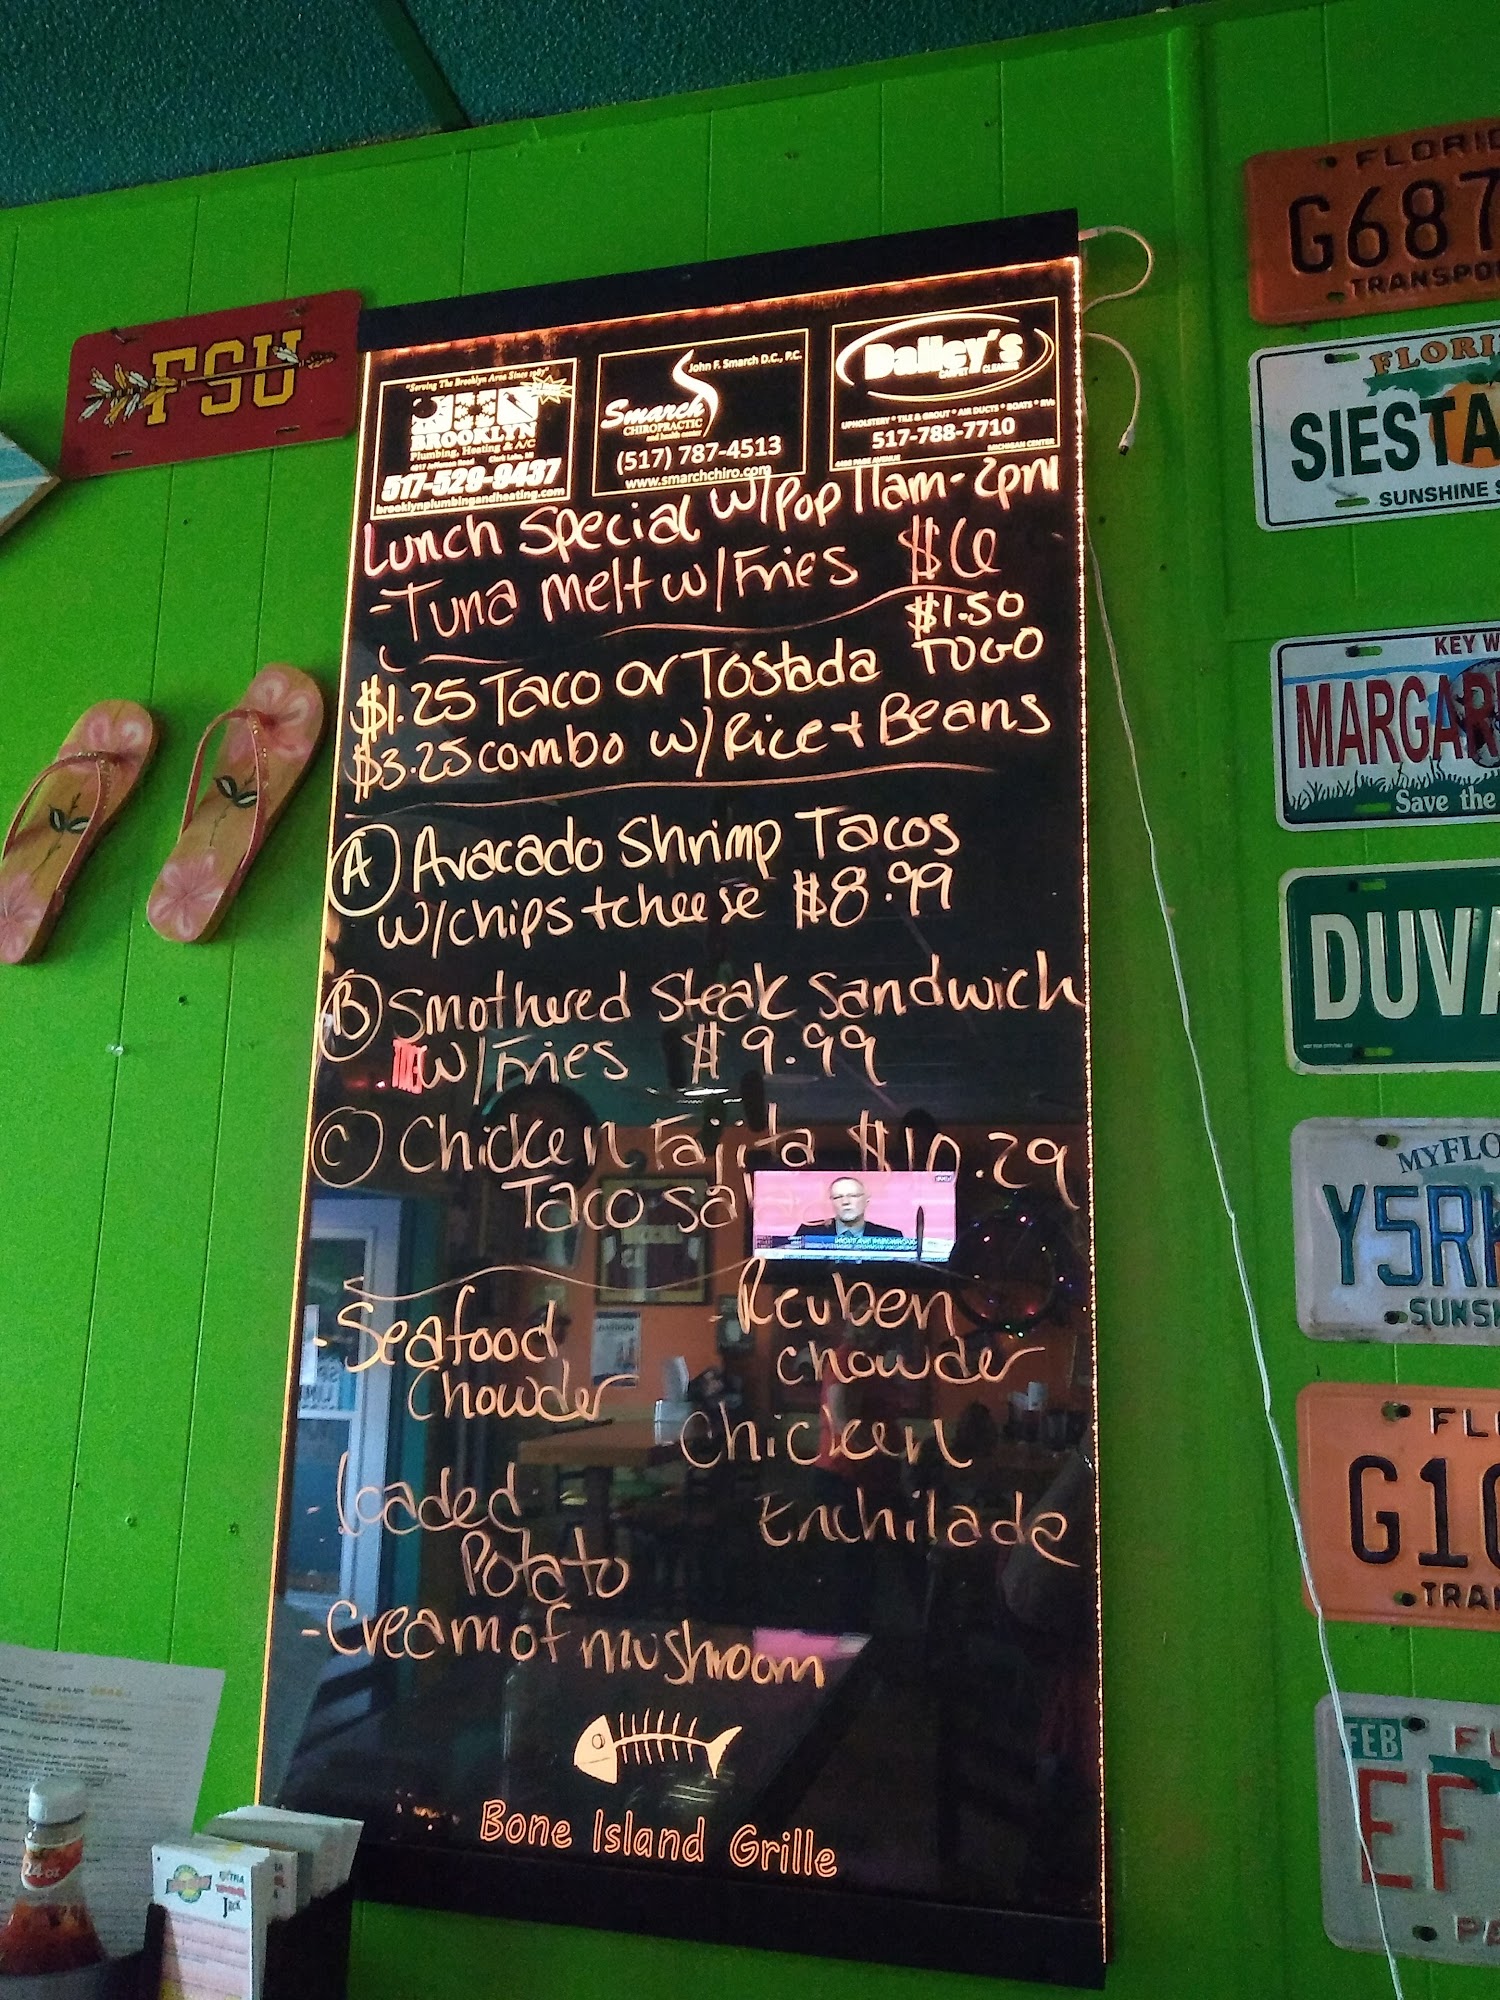 FSU
"Serving The Brooklyn Area Since 1987"
BROOKLYN
Plumbing, Heating & A/C
Clark Lake, MI
517-529-9437
brooklynplumbingandheating.com
John F. Smarch D.C., P.C.
Smarch
CHIROPRACTIC
and health center
(517) 787-4513
www.smarchchiro.com
Dailey's
CARPET CLEANING
UPHOLSTERY * TILE & GROUT * AIR DUCTS * BOATS * RVs
517-788-7710
PAGE AVENUE MICHIGAN CENTER
Lunch Special w/Pop 11am-2pm
-Tuna melt w/Fries $6
$1.50
TOGO
$1.25 Taco or Tostada
$3.25 combo w/Rice + Beans
A Avacado Shrimp Tacos
w/chips + cheese $8.99
B Smothered Steak Sandwich
w/Fries $9.99
C Chicken Fajita $10.29
Taco sa
-Seafood
Chowder
-Loaded
Potato
-Cream of mushroom
-Reuben
chowder
Chicken
Enchilada
Bone Island Grille
FLORID
G687
TRANSPO
FLORI
SIESTA
SUNSHINE S
KEY W
MARGAR
Save the
DUVA
MYFLO
Y5R
SUNSH
FL
G10
TRA
FEB
FL
EF
PA
24 OZ